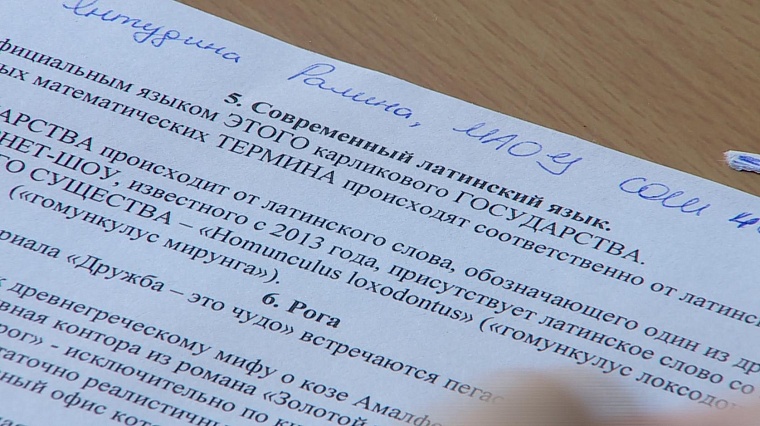 Янтурина Рамина, МАОУ СОШ
5. Современный латинский язык.
фициальным языком ЭТОГО карликового ГОСУДАРСТВА.
ых математических ТЕРМИНА происходят соответственно от латинс
ДАРСТВА происходит от латинского слова, обозначающего один из др
РНЕТ-ШОУ, известного с 2013 года, присутствует латинское слово со
ГО СУЩЕСТВА – «Homunculus loxodontus» («гомункулус локсодо
(«гомункулус мирунга»).
6. Рога
риала «Дружба – это чудо» встречаются пегас
к древнегреческому мифу о козе Амалфе
вная контора из романа «Золотой
рог» - исключительно по кн
таточно реалистичны
ный офис кото